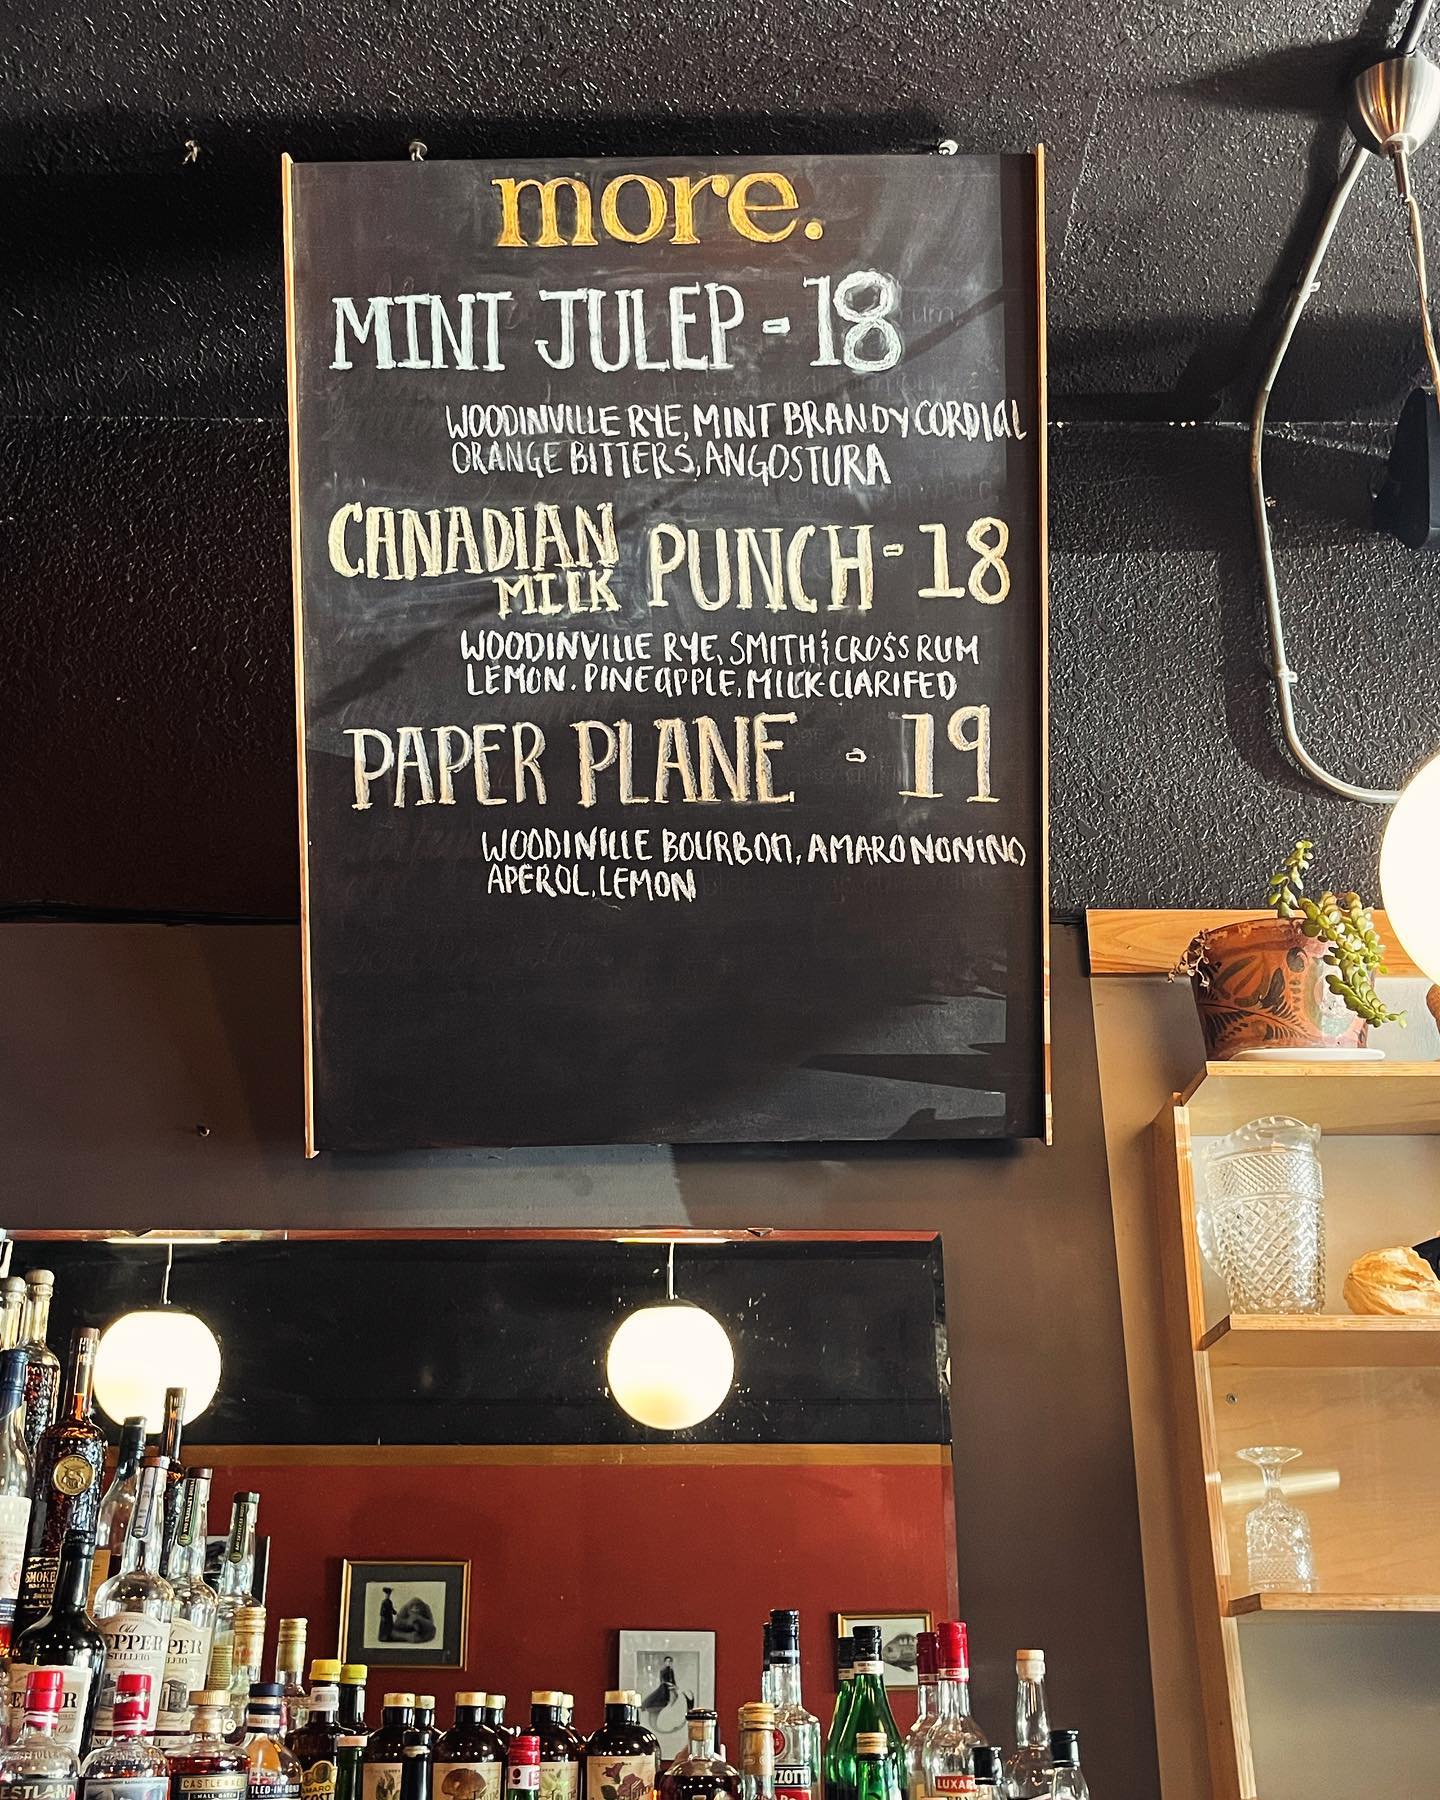 more.
MINT JULEP - 18
WOODINVILLE RYE, MINT BRANDY CORDIAL
ORANGE BITTERS, ANGOSTURA
CANADIAN MILK PUNCH - 18
WOODINVILLE RYE, SMITH & CROSS RUM
LEMON. PINEAPPLE, MILK CLARIFED
PAPER PLANE - 19
WOODINILLE BOURBON, AMARO NONINO
APEROL, LEMON
Old
PEPPER